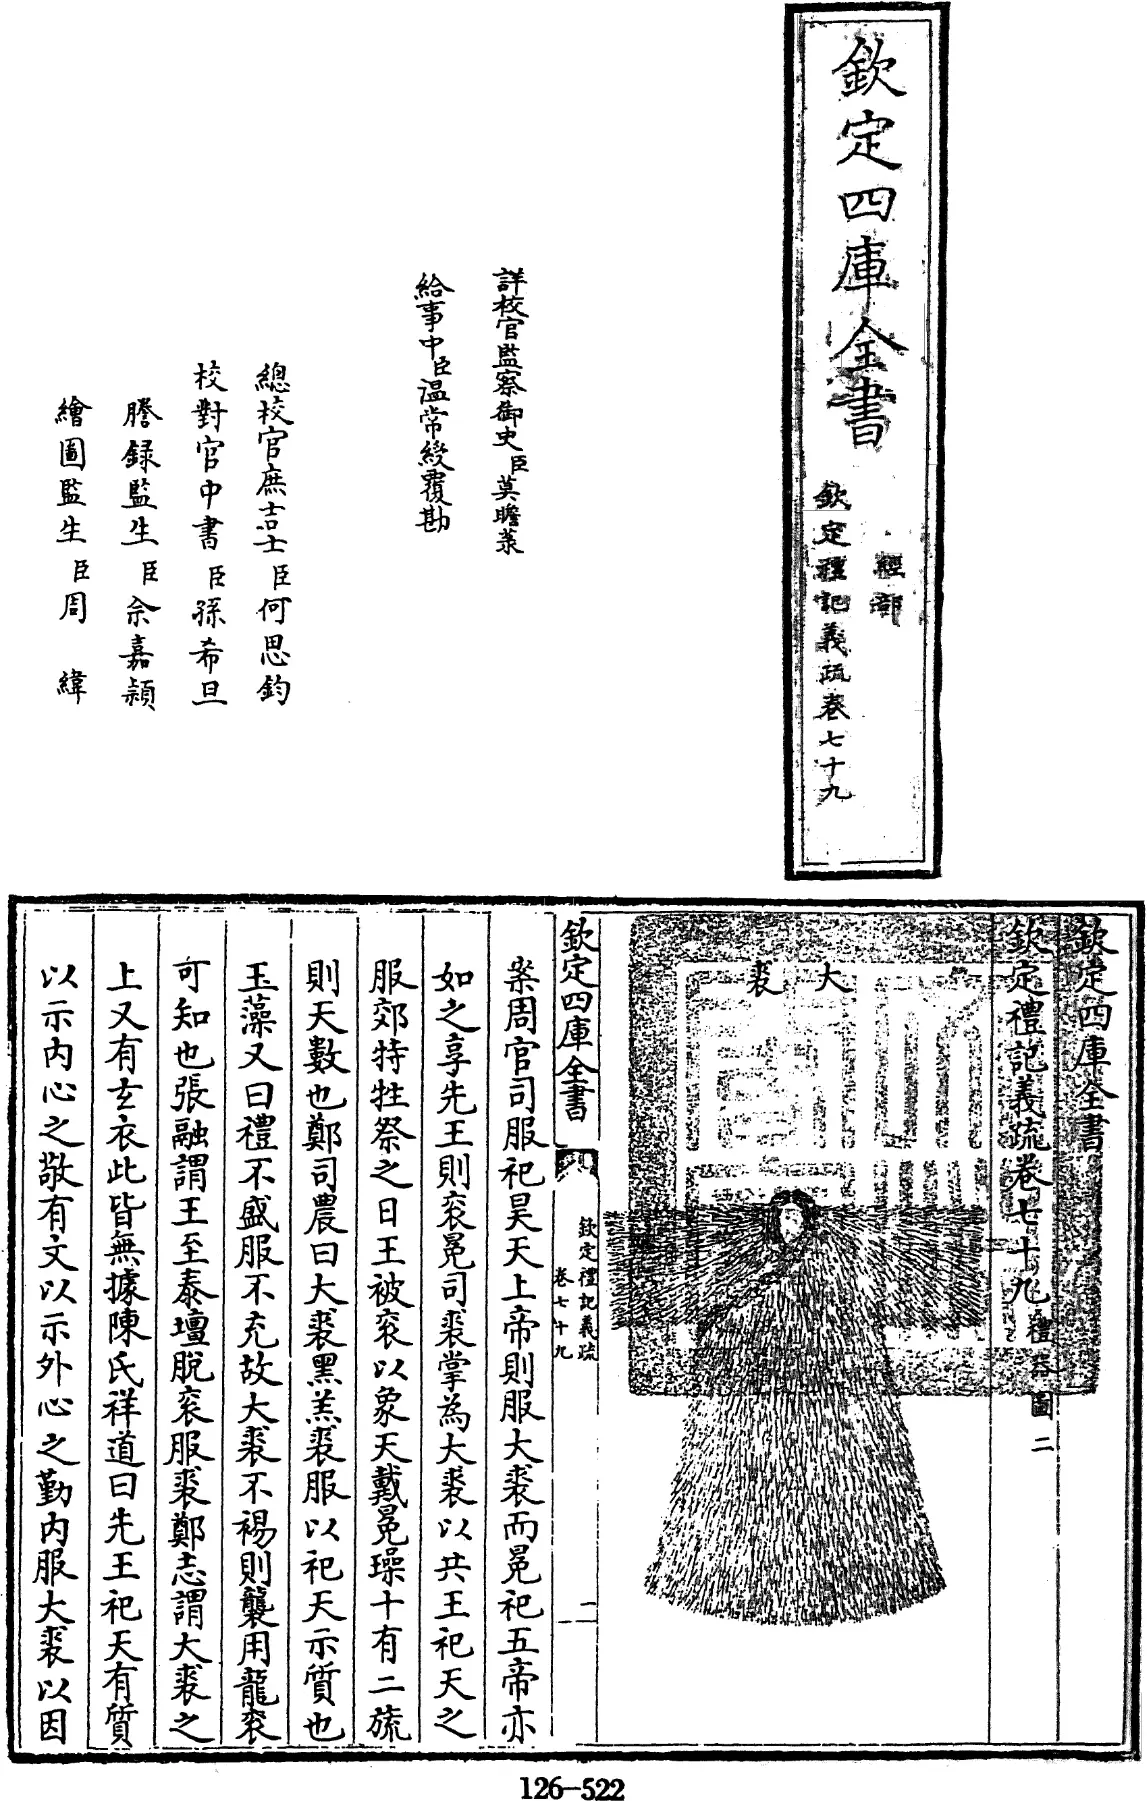 欽定四庫全書
經部
欽定禮記義疏卷七十九
詳校官監察御史臣莫瞻菉
給事中臣溫常綬覆勘
總校官庶吉士臣何思鈞
校對官中書臣孫希旦
謄錄監生臣余嘉穎
繪圖監生臣周緯
欽定四庫全書
欽定禮記義疏卷七十九 禮器圖二
大
裘
欽定四庫全書
欽定禮記義疏
卷七十九
二
案周官司服祀昊天上帝則服大裘而冕祀五帝亦
如之享先王則衮冕司裘掌為大裘以共王祀天之
服郊特牲祭之日王被衮以象天戴冕璪十有二旒
則天數也鄭司農曰大裘黑羔裘服以祀天示質也
玉藻又曰禮不盛服不充故大裘不裼則襲用龍衮
可知也張融謂王至泰壇脫衮服裘鄭志謂大裘之
上又有玄衣此皆無據陳氏祥道曰先王祀天有質
以示内心之敬有文以示外心之勤内服大裘以因
126-522